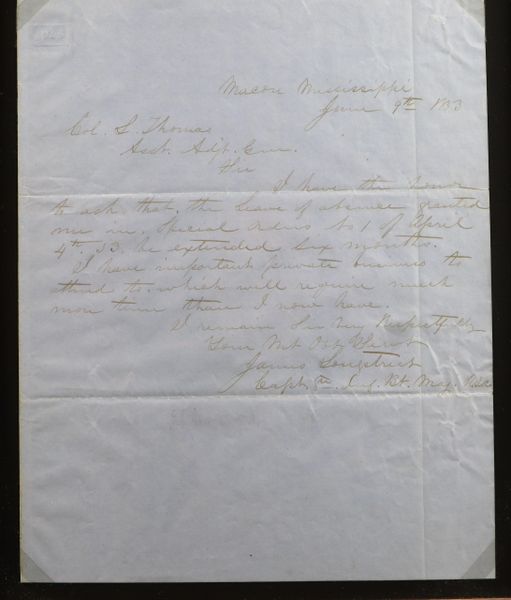 Macon Mississippi
June 9th 1853
Col. L. Thomas
Asst. Adjt. Gen.
Sir
I have the honor
to ask that the leave of absence granted
me in Special Orders No 1 of April
4th 53. be extended six months.
I have important private business to
attend to which will require much
more time than I now have.
I remain Sir Very Respectfully
Your Mt Obt Servt
James Longstreet
Capt. Inf. Bt. Maj.